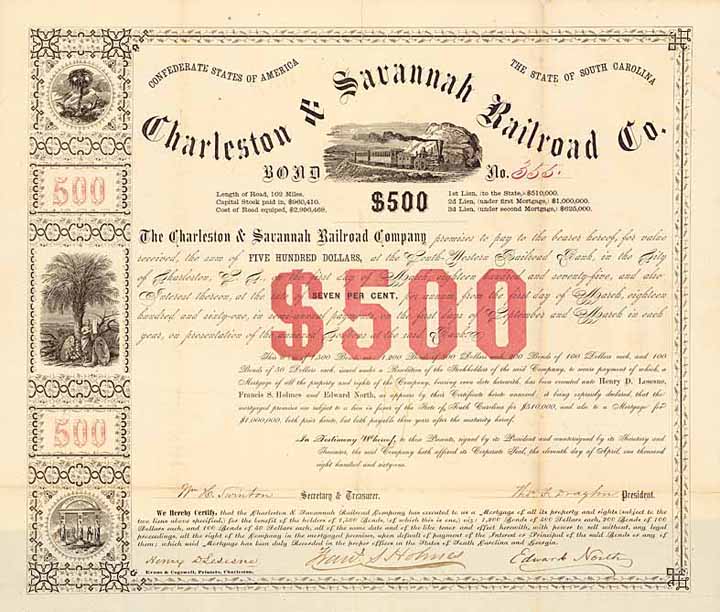 CONFEDERATE STATES OF AMERICA
THE STATE OF SOUTH CAROLINA
Charleston & Savannah Railroad Co.
BOND
No. 355.
$500
Length of Road, 102 Miles.
Capital Stock paid in, $960,410.
Cost of Road equiped, $2,996,468.
1st Lien, (to the State,) $510,000.
2d Lien, (under first Mortgage,) $1,000,000.
3d Lien, (under second Mortgage,) $625,000.
500
500
$500
The Charleston & Savannah Railroad Company promises to pay to the bearer hereof, for value
received, the sum of FIVE HUNDRED DOLLARS, at the South Western Railroad Bank, in the City
of Charleston, on the first day of March, eighteen hundred and seventy-five, and also
Interest thereon, at the rate of SEVEN PER CENT, per annum, from the first day of March, eighteen
hundred and sixty-one, in semi-annual payments, on the first days of September and March in each
year, on presentation of the annexed at the said Bank.
This 1,200 Bonds of 500 Dollars 200 Bonds of 100 Dollars each, and 100
Bonds of 50 Dollars each, issued under a Resolution of the Stockholders of the said Company, to secure payment of which, a
Mortgage of all the property and rights of the Company, bearing even date herewith, has been executed unto Henry D. Lesesne,
Francis S. Holmes and Edward North, as appears by their Certificate hereto annexed, it being expressly declared, that the
mortgaged premises are subject to a lien in favor of the State of South Carolina for $510,000, and also to a Mortgage for
$1,000,000, both prior hereto, but both payable then years after the maturity hereof.
In Testimony Whereof, to these Presents, signed by its President and countersigned by its Secretary and
Treasurer, the said Company hath affixed its Corporate Seal, the eleventh day of April, one thousand
eight hundred and sixty-one.
Wm H. Swinton Secretary & Treasurer.
Thos. F. Drayton President.
We Hereby Certify, that the Charleston & Savannah Railroad Company has executed to us a Mortgage of all its property and rights (subject to the
two liens above specified,) for the benefit of the holders of 1,500 Bonds, (of which this is one,) viz: 1,200 Bonds of 500 Dollars each, 200 Bonds of 100
Dollars each, and 100 Bonds of 50 Dollars each, all of the same date and of the like tenor and effect herewith, with power to sell without, any legal
proceedings, all the right of the Company in the mortgaged premises, upon default of payment of the Interest or Principal of the said Bonds or any of
them; which said Mortgage has been duly Recorded in the proper offices in the States of South Carolina and Georgia.
Henry D Lesesne
Fran. S. Holmes
Edward North
Evans & Cogswell, Printers, Charleston.